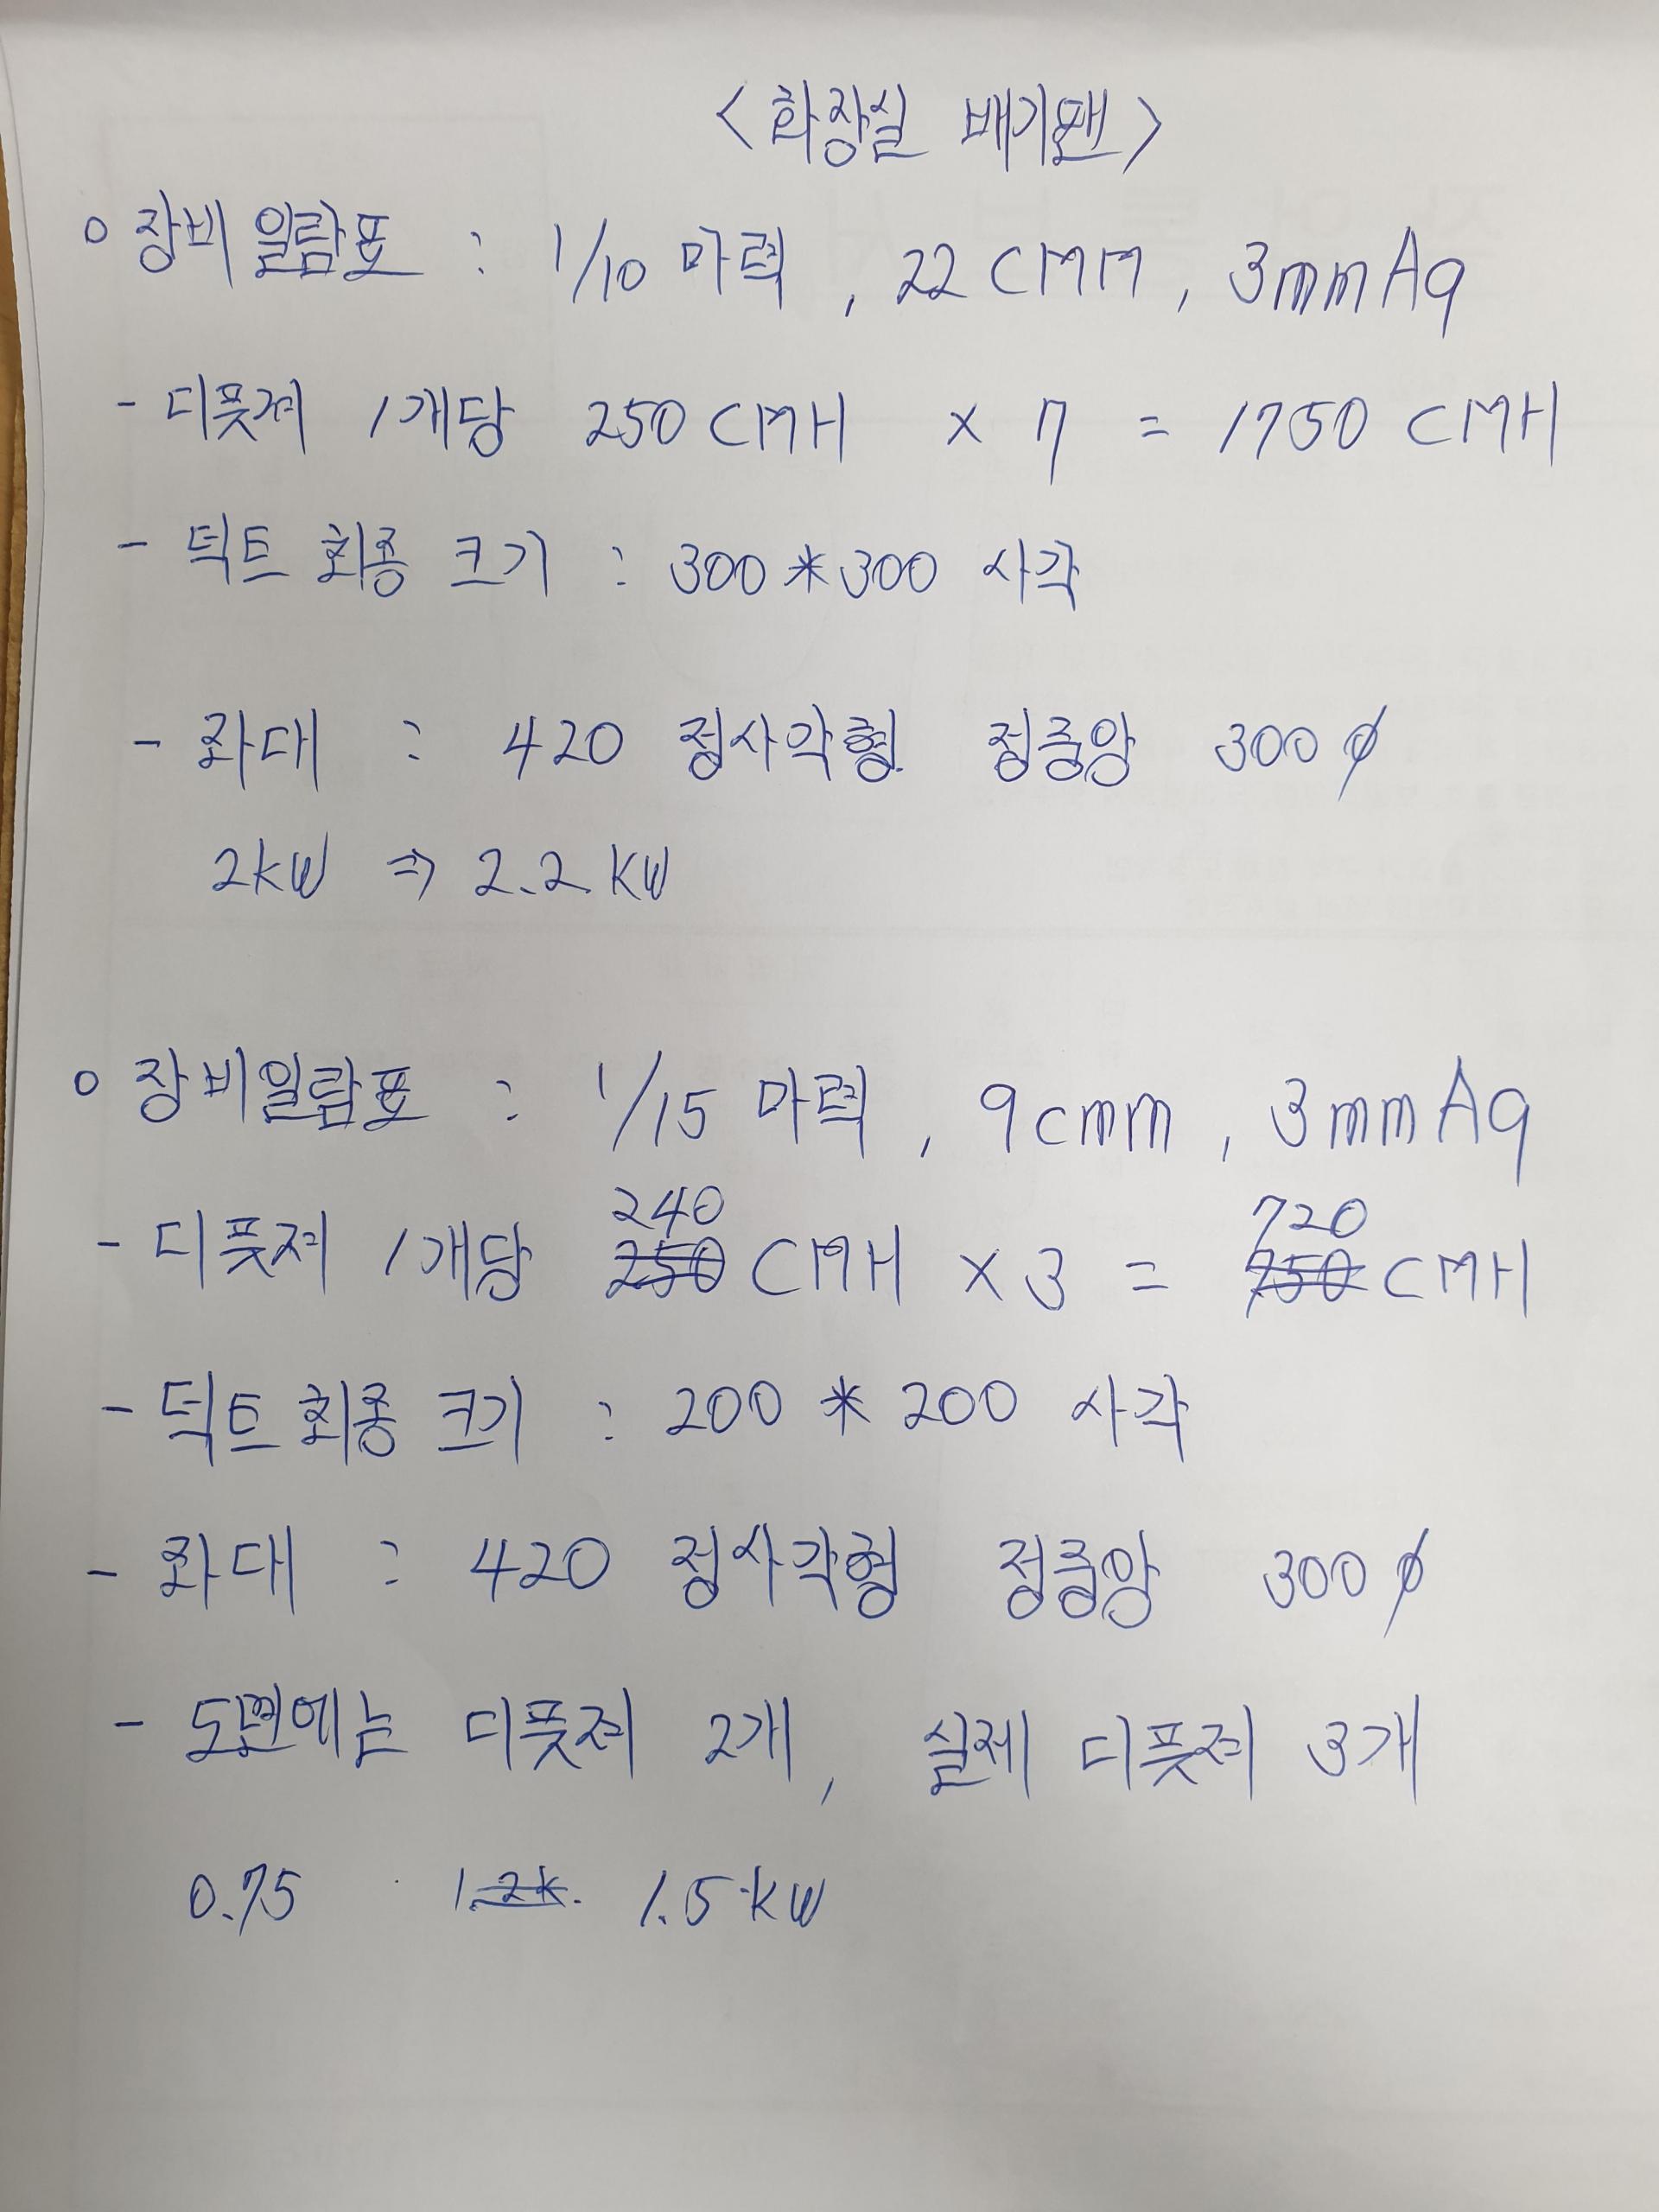 <화장실 배기팬>
o 장비일람표 : 1/10 마력, 22 CMM, 3mmAq
- 디퓻져 1개당 250 CMH × 7 = 1750 CMH
- 덕트 최종 크기 : 300*300 사각
- 좌대 : 420 정사각형 정중앙 300ϕ
2kW ⇒ 2.2 kW
o 장비일람표 : 1/15 마력, 9cmm, 3mmAq
240 720
- 디퓻져 1개당 250 CMH × 3 = 750 CMH
- 덕트 최종 크기 : 200 * 200 사각
- 좌대 : 420 정사각형 정중앙 300ϕ
- 도면에는 디퓻져 2개, 실제 디퓻져 3개
0.75 1.2k. 1.5kW